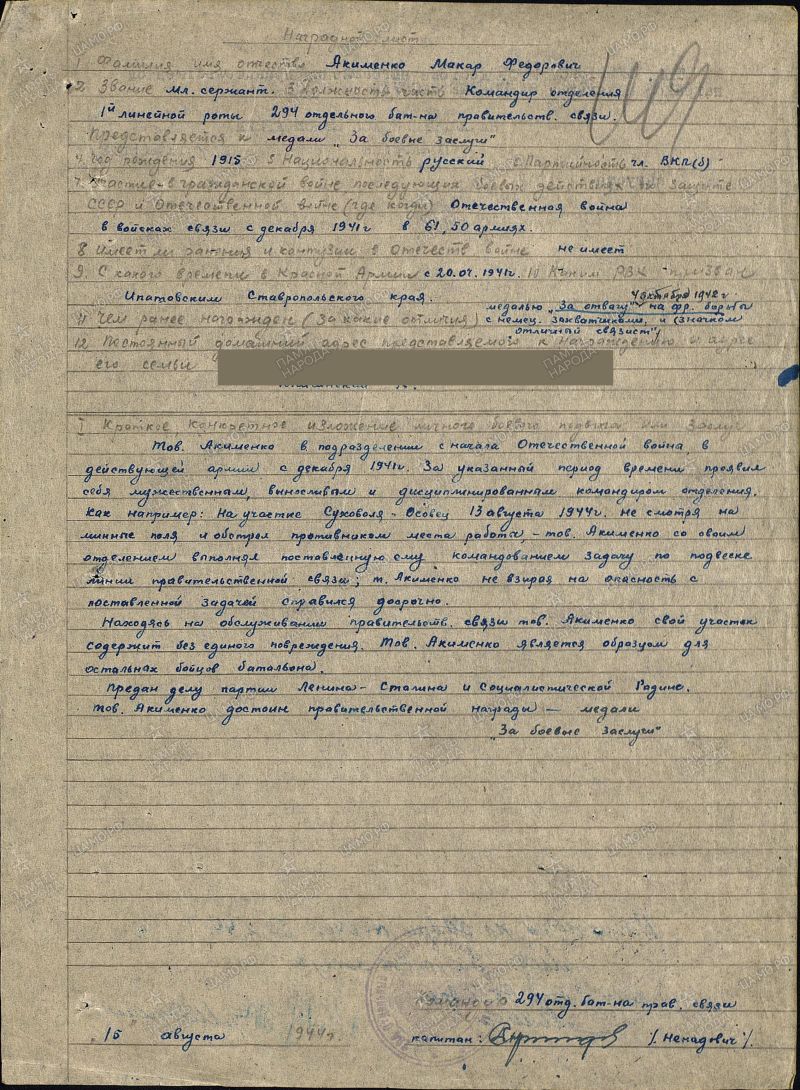 Наградной лист
1 Фамилия имя отчество Акименко Макар Федорович
2 Звание мл. сержант. 3 Должность часть Командир отделения
1й линейной роты 294 отдельного бат-на правительств. связи.
Представляется к медали "За боевые заслуги"
4 год рождения 1915 5 Национальность русский 6 Партийность чл. ВКП(б)
7 Участие в гражданской войне последующих боевых действиях по защите
СССР и Отечественной войне (где когда) Отечественная война
в войсках связи с декабря 1941г в 61, 50 армиях.
8 Имеет ли ранения и контузии в Отечеств войне не имеет
9. С какого времени в Красной Армии с 20.07.1941г. 10 Каким РВК призван
Ипатовским Ставропольского края.
11 Чем ранее награжден (за какие отличия) медалью "За отвагу" 4 октября 1942г на фр. борьбы
с немец. захватчиками и (значком
отличный связист")
12 Постоянный домашний адрес представляемого к награждению и адрес
его семьи
I Краткое конкретное изложение личного боевого подвига или заслуг
Тов. Акименко в подразделении с начала Отечественной война, в
действующей армии с декабря 1941г. За указанный период времени проявил
себя мужественным, выносливым и дисциплинированным командиром отделения.
Как например: На участке Суховоля - Осовец 13 августа 1944г. не смотря на
минные поля и обстрел противником места работы, - тов. Акименко со своим
отделением выполнял поставленную ему командованием задачу по подвеске
линии правительственной связи; т. Акименко не взирая на опасность с
поставленной задачей справился досрочно.
Находясь на обслуживании правительств. связи тов. Акименко свой участок
содержит без единого повреждения. Тов. Акименко является образцом для
остальных бойцов батальона.
Предан делу партии Ленина - Сталина и Социалистической Родине.
Тов. Акименко достоин правительственной награды — медали
"За боевые заслуги"
Командир 294 отд. бат-на прав. связи
"15 августа 1944г.
капитан: /. Ненадович /.
149
ПАМЯТЬ НАРОДА
ЦАМО.РФ